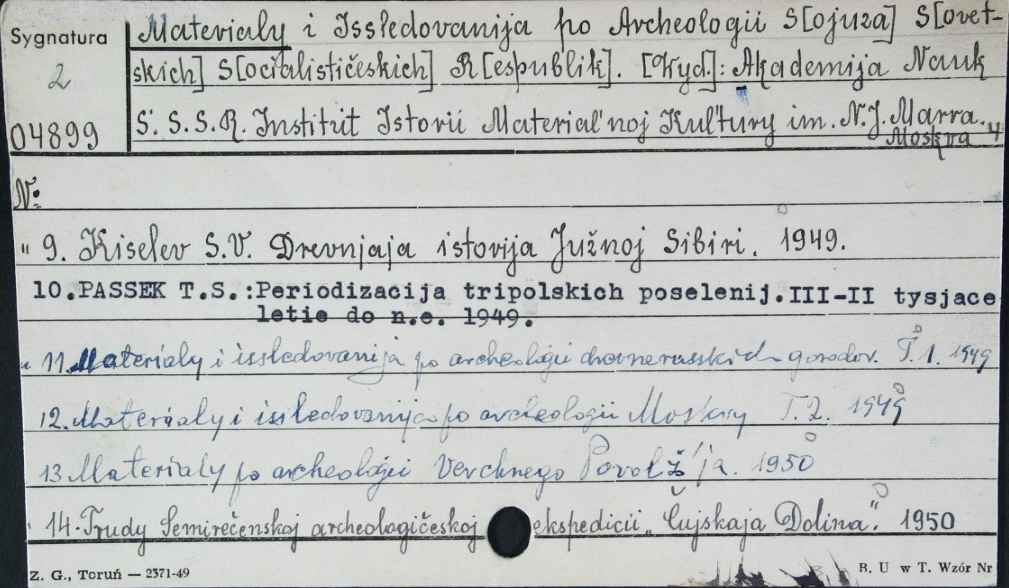 Sygnatura
2
04899
Materiały i Issledovanija po Archeologii S[ojuza] S[ovet-
skich] S[ocialističeskich] R[espublik]. [Wyd.]: Akademija Nauk
S. S.S.R. Institut Istorii Material'noj Kul'tury im. N.J. Marra.
Moskva
N:
" 9. Kiselev S.V. Drevnjaja istorija Južnoj Sibiri. 1949.
10.PASSEK T.S.:Periodizacija tripolskich poselenij.III-II tysjace
letie do n.e. 1949.
" 11. Materiały i issledovanija po archeologii drevnerusskich gorodov. T. 1. 1949
12. Materiały i issledovanija po archeologii Moskvy T. 2. 1949
13 Materiały po archeologii Verchnego Povolž'ja. 1950
14. Trudy Semirečenskoj archeologičeskoj ekspedicii „Čujskaja Dolina". 1950
Z. G., Toruń — 2371-49
R. U w T. Wzór Nr